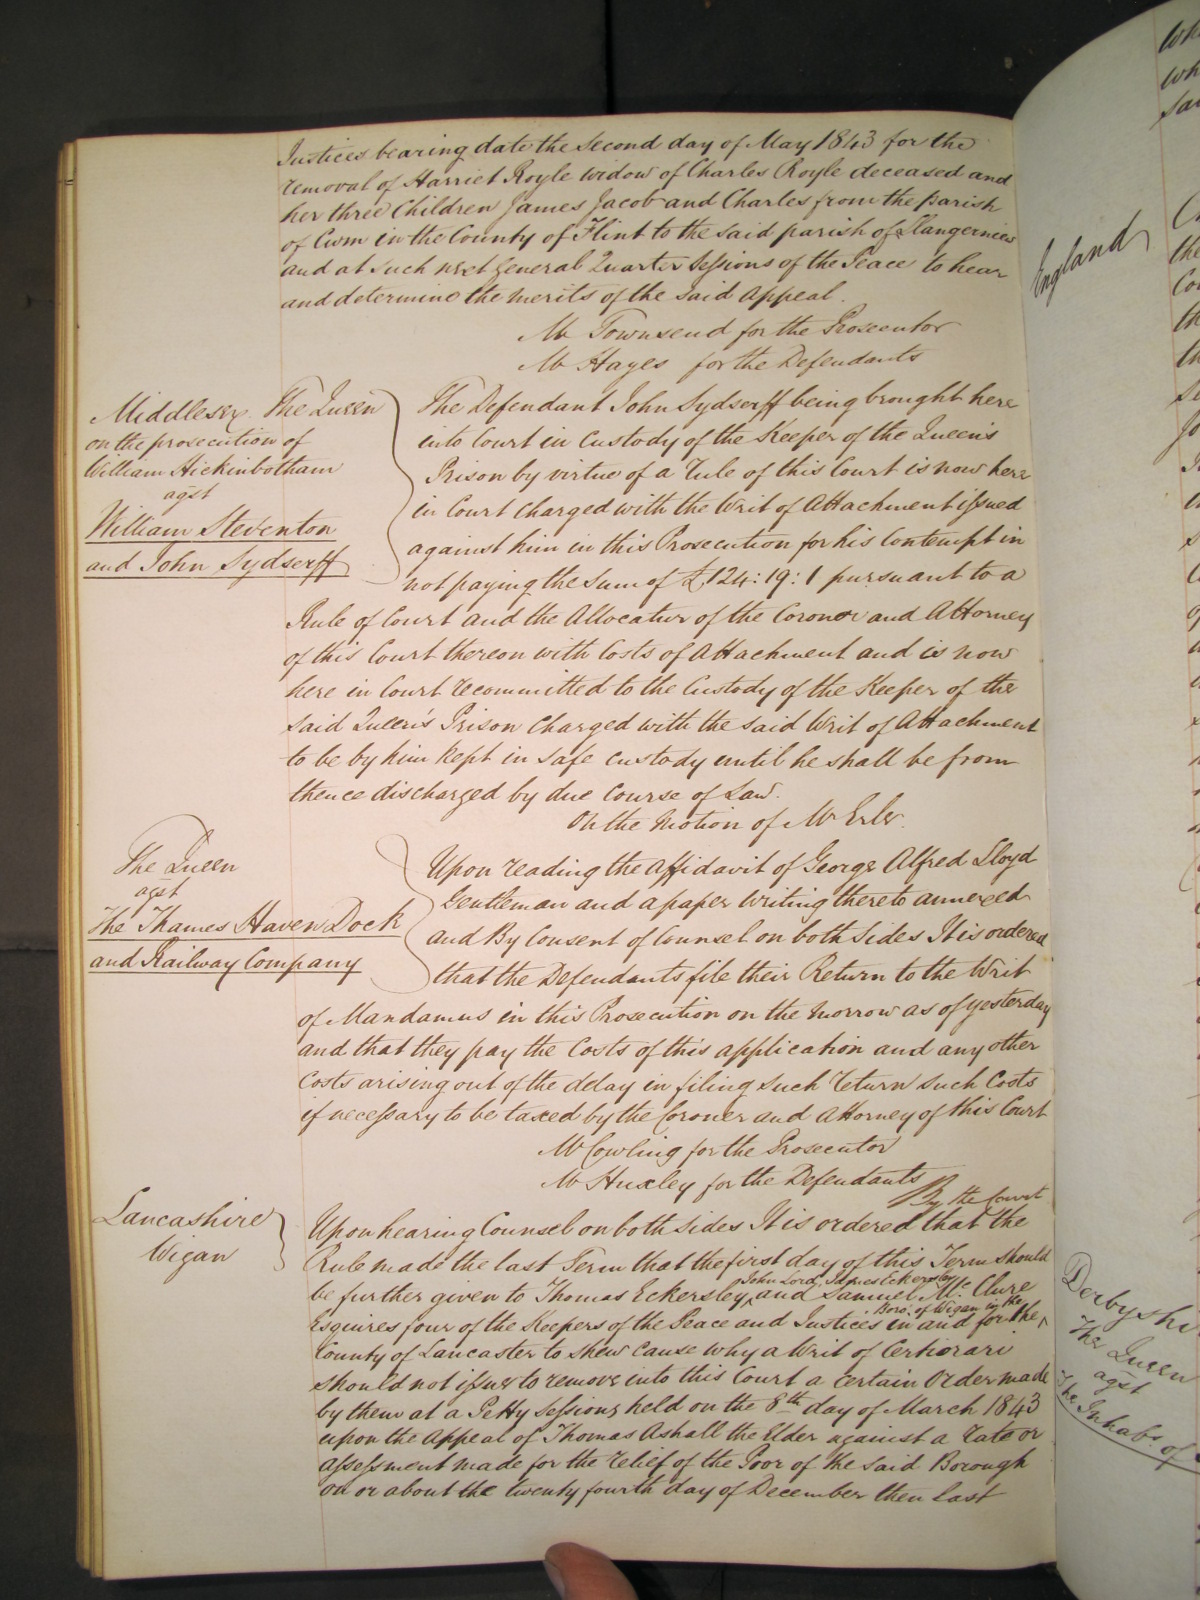 Justices bearing date the Second day of May 1843 for the
removal of Harriet Royle widow of Charles Royle deceased and
her three Children James Jacob and Charles from the parish
of Cwm in the County of Flint to the said parish of Llangerniew
and at such next General Quarter Sessions of the Peace to hear
and determine the merits of the said Appeal.
Mr Townsend for the Prosecutor
Mr Hayes for the Defendants
Middlesex The Queen
on the prosecution of
William Hickinbotham
agst
William Steventon
and John Sydserff
The Defendant John Sydserff being brought here
into Court in Custody of the Keeper of the Queen's
Prison by virtue of a Rule of this Court is now here
in Court charged with the Writ of Attachment issued
against him in this Prosecution for his Contempt in
not paying the Sum of £124:19:1 pursuant to a
Rule of Court and the Allocatur of the Coroner and Attorney
of this Court thereon with Costs of Attachment and is now
here in Court recommitted to the Custody of the Keeper of the
said Queen's Prison Charged with the said Writ of Attachment
to be by him kept in safe custody until he shall be from
thence discharged by due course of Law.
On the Motion of Mr Erle.
The Queen
agst
The Thames Haven Dock
and Railway Company
Upon reading the Affidavit of George Alfred Lloyd
Gentleman and a paper Writing thereto annexed
and By Consent of Counsel on both Sides It is ordered
that the Defendants file their Return to the Writ
of Mandamus in this Prosecution on the morrow as of yesterday
and that they pay the Costs of this application and any other
Costs arising out of the delay in filing such return such Costs
if necessary to be taxed by the Coroner and Attorney of this Court
Mr Cowling for the Prosecutor
Mr Huxley for the Defendants
By the Court
Lancashire
Wigan
Upon hearing Counsel on both sides It is ordered that the
Rule made the last Term that the first day of this Term should
be further given to Thomas Eckersley, John Lord, James Eckersley and Samuel Mc. Clure
Esquires four of the Keepers of the Peace and Justices in and for the Boro: of Wigan in the
County of Lancaster to shew cause why a Writ of Certiorari
should not issue to remove into this Court a certain Order made
by them at a Petty Sessions held on the 8th day of March 1843
upon the Appeal of Thomas Ashall the Elder against a rate or
assessment made for the relief of the Poor of the said Borough
on or about the twenty fourth day of December then last
England
Derbyshi
The Queen
agst
The Inhabs. of